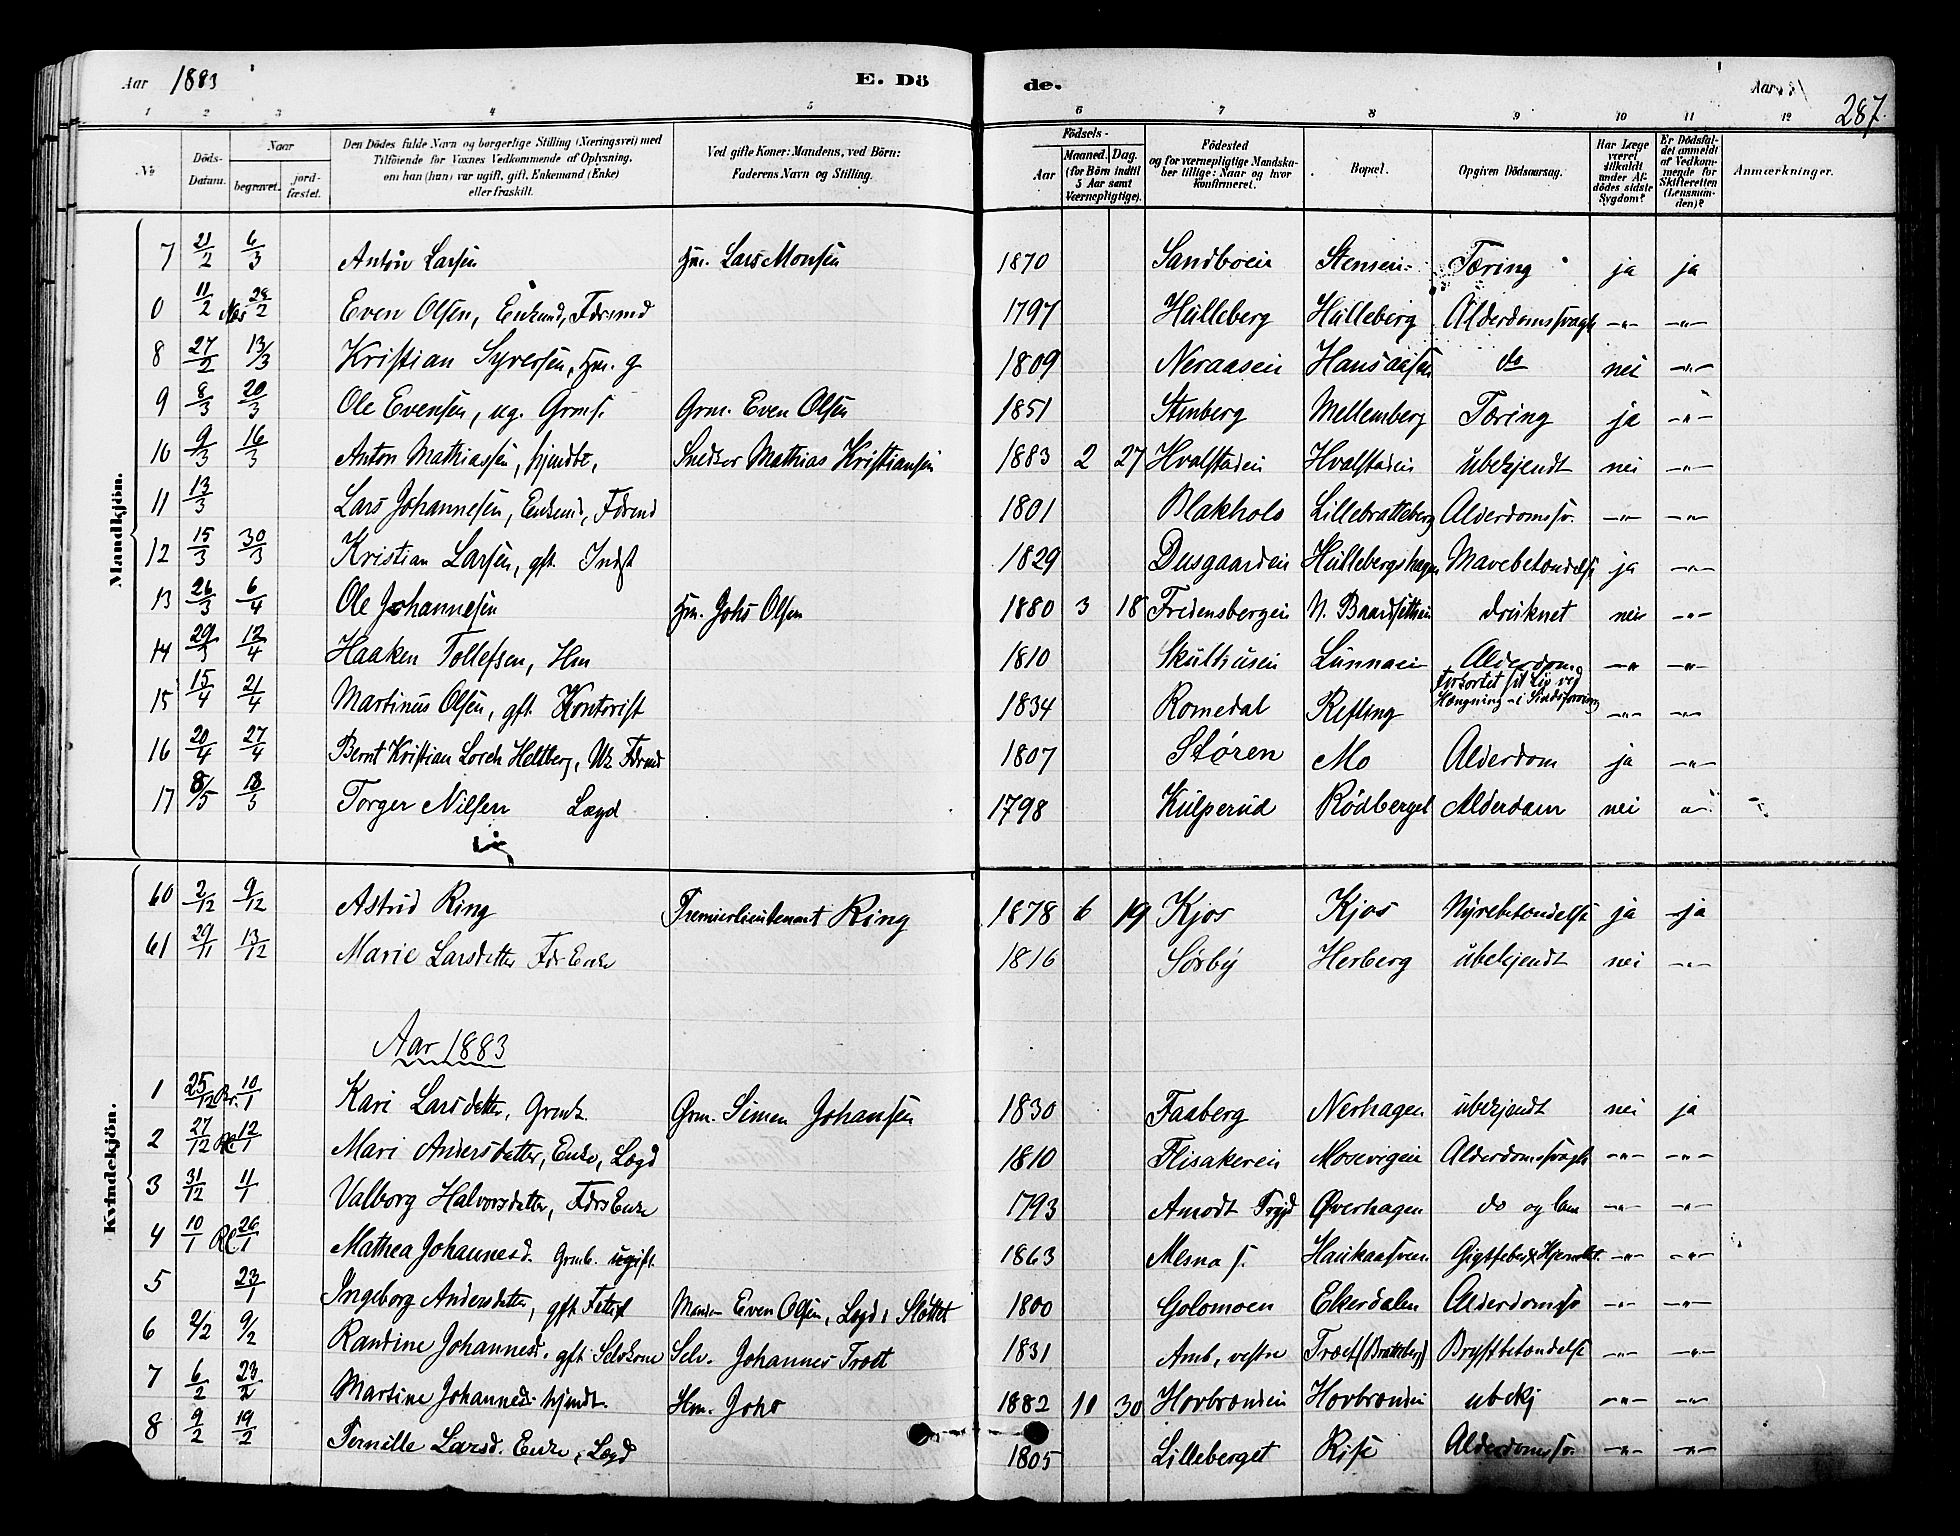 Aar 1883 E. Dö de. Aar
287.
1 2 3 4 5 6 7 8 9 10 11 12
No Döds-Datum. Naar begravet. jordfæstet. Den Dödes fulde Navn og borgerlige Stilling (Næringsvei) med Tilföiende for Voxnes Vedkommende af Oplysning, om han (hun) var ugift, gift, Enkemand (Enke) eller fraskilt. Ved gifte Koner: Mandens, ved Börn: Faderens Navn og Stilling. Födsels- Aar Maaned. Dag. (for Börn indtil 5 Aar samt Værnepligtige). Födested og for værnepligtige Mandskaber tillige: Naar og hvor konfirmeret. Bopæl. Opgiven Dödsaarsag. Har Læge været tilkaldt under Afdödes sidste Sygdom? Er Dödsfaldet anmeldt af Vedkommende for Skifteretten (Lensmanden)? Anmærkninger.
Mandkjön.
7 21/2 6/3 Anton Larsen Hm. Lars Monsen 1870 Sandboen Stensen Tæring ja ja
0 11/2 28/2 Even Olsen, Enkemd, Fdrmd 1797 Hulleberg Hulleberg Alderdomssvagh -"- -"-
8 27/2 13/3 Kristian Syversen, Hm. g 1809 Neraasen do nei -"-
9 8/3 20/3 Ole Evensen, ug. Grms. Grm. Even Olsen 1851 Stenberg Mellemberg Tæring ja -"-
10 9/3 16/3 Anton Mathiassen, hjmdbt, Snedker Mathias Kristiansen 1883 2 27 Hvalstaden Hvalstaden ubekjendt nei -"-
11 13/3 Lars Johannesen, Enkemd, Fdrmd 1801 Blakhols Lillebratteberg Alderdomssv. -"- -"-
12 15/3 30/3 Kristian Larsen, gft Indst 1829 Dusgaarden Hullebergshagen Mavebetændelse ja -"-
13 26/3 6/4 Ole Johannesen Hm. Johs Olsen 1880 3 18 Fredensbergen N. Baardsethen druknet nei -"-
14 29/3 12/4 Haaken Tollefsen, Hm 1810 Skulhusen Lunnaen Alderdom -"- -"-
15 15/4 21/4 Martinus Olsen, gft Kontorist 1834 Romedal Refling Forkortet sit Liv ved Hængning i Sindsforvirring -"- -"-
16 20/4 27/4 Bernt Kristian Lorch Heltberg, Fdrmd 1807 Støren Mo Alderdom ja -"-
17 8/5 18/5 Torger Nilsen Lægd 1798 Kulperud Rødberget Alderdom nei -"-
Kvindekjön.
60 2/12 9/12 Astrid Ring Premierlieutenant Ring 1878 6 19 Kjos Kjos Nyrebetændelse ja ja
61 29/11 13/12 Marie Larsdatter FdrEnke 1816 Sørby Herberg ubekjendt nei -"-
Aar 1883
1 25/12 10/1 Kari Larsdatter, Grmk. Grm. Simen Johansen 1830 Faaberg Nerhagen ubekjendt nei ja
2 27/12 12/1 Mari Andersdatter, Enke, Lægd 1810 Flisakeren Mosevigen Alderdomssvagh -"- -"-
3 31/12 11/1 Valborg Halvorsdatter, FdrsEnke 1793 Amodt Tryd Øverhagen do og lam -"- -"-
4 10/1 26/1 Mathea Johannesd. Grmd. ugift. 1863 Mesna s. Haukaasveen Gigtfeber & Hjertebet. -"- -"-
5 23/1 Ingeborg Andersdatter, gft Manden Even Olsen, Lægd, Slottet 1800 Golomoen Ekerdalen Alderdomssv -"- -"-
6 2/2 9/2 Randine Johannesd. gft Selvkone Selv. Johannes Troet 1831 Amb, vestre Troet (Bratberg) Brystbetændelse -"- -"-
7 6/2 23/2 Martine Johannesd. hjmdt. Hm. Johs 1882 10 30 Hovbrenden Hovbrenden ubekj -"- -"-
8 9/2 19/2 Pernille Larsd. Enke, Lægd 1805 Lilleberget Rise Alderdomssv. -"- -"-